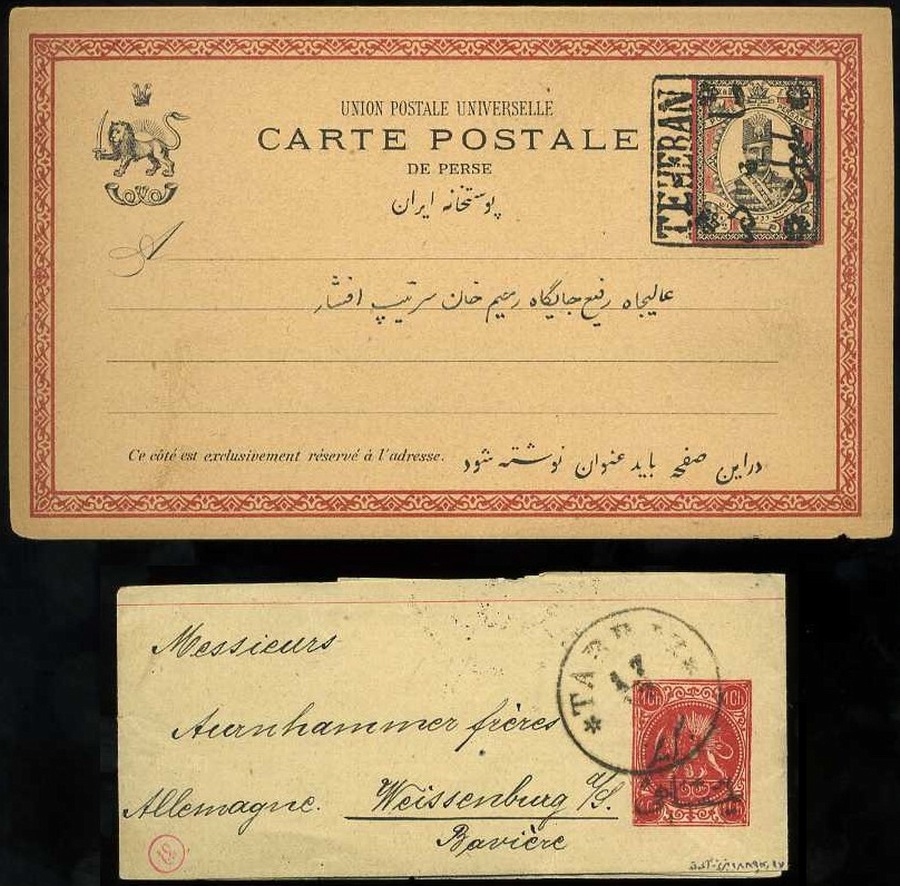 UNION POSTALE UNIVERSELLE
CARTE POSTALE
DE PERSE
پوستخانه ایران
TEHERAN
A
عالیجاه رفیع جایگاه رحیم خان سرتیپ افشار
Ce côté est exclusivement réservé à l'adresse.
دراین صفحه باید عنوان نوشته شود
Messieurs
Aurnhammer frères
Allemagne. Weissenburg a/S.
Bavière
1Ch 1Ch